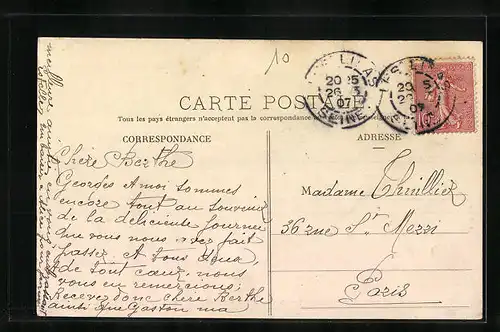 10
LES LILAS
20 15
26 3
07
SEINE
LES LILAS
20 15
26 3
07
SEINE
CARTE POSTALE
Tous les pays étrangers n'acceptent pas la correspondance
CORRESPONDANCE
ADRESSE
Chère Berthe
Georges & moi sommes
encore tout au souvenir
de la délicieuse journée
que vous nous avez fait
passer. A tous deux
de tout cœur, nous
vous en remercions;
Recevez donc chère Berthe
ainsi que Gaston ma
meilleure
Madame Thuillier
36 rue St Merri
Paris